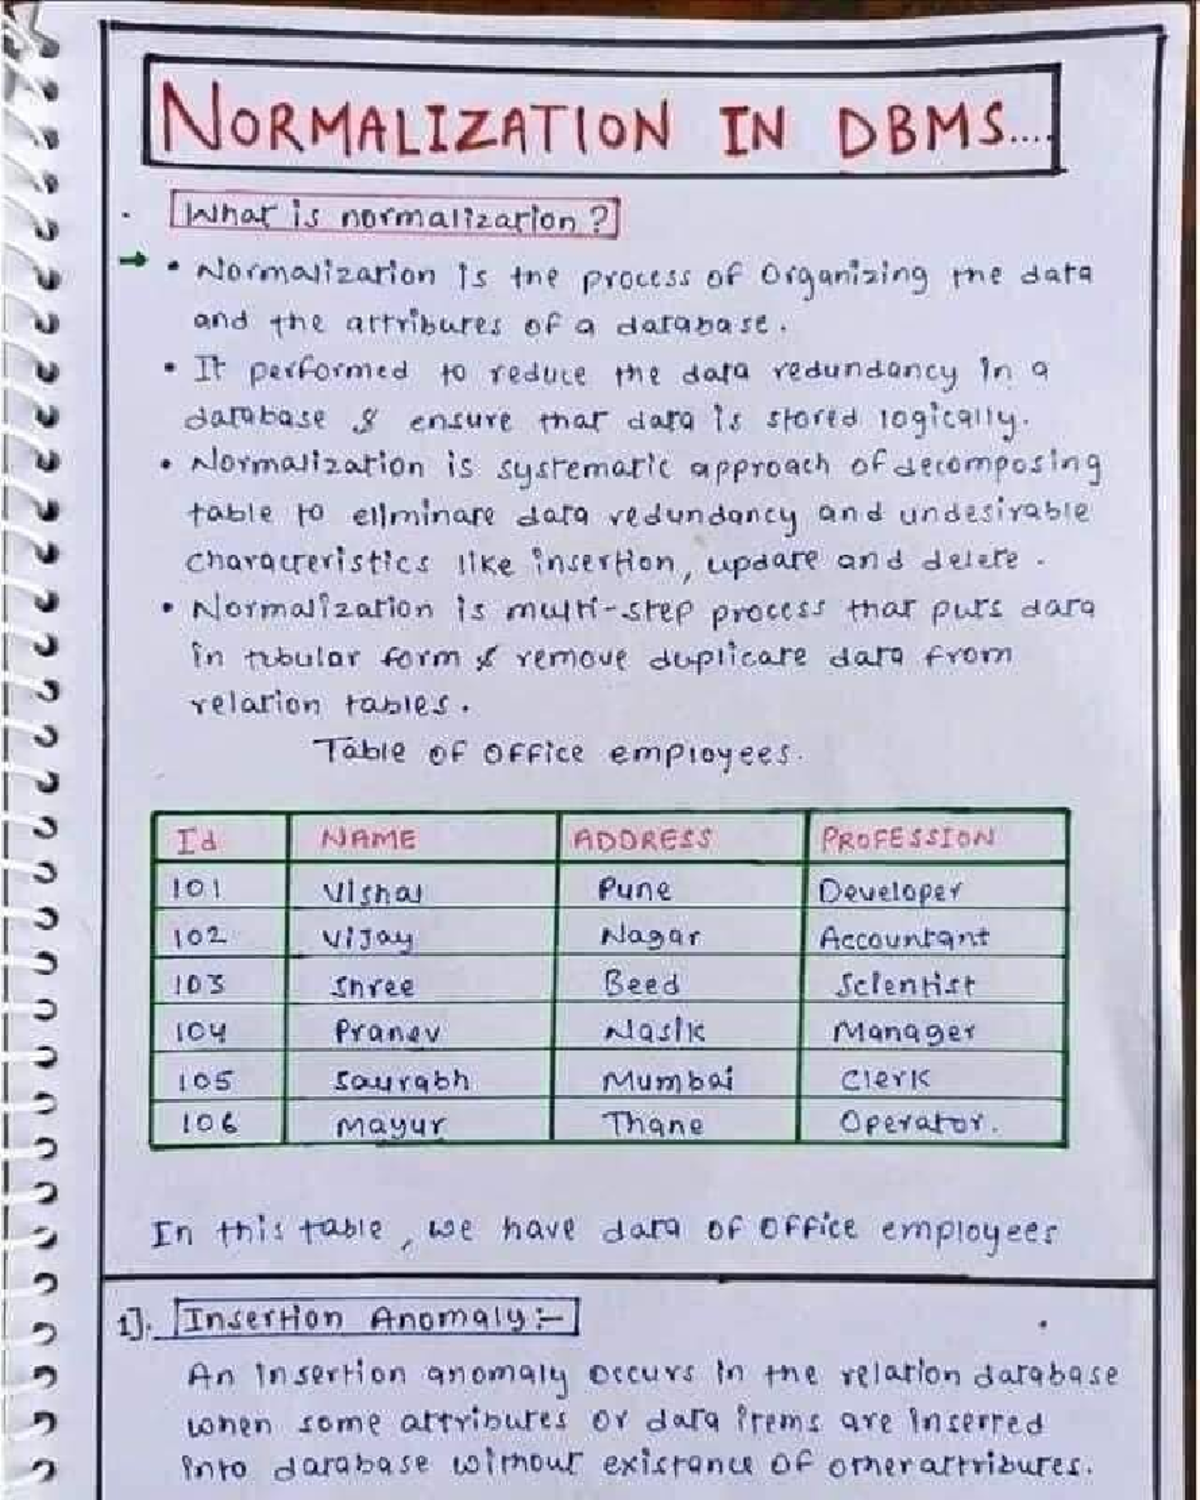 NORMALIZATION IN DBMS....
What is normalization?
→ • Normalization is the process of Organizing the data
and the attributes of a database.
• It performed to reduce the data redundancy in a
database & ensure that data is stored logically.
• Normalization is systematic approach of decomposing
table to eliminate data redundancy and undesirable
characteristics like insertion, update and delete.
• Normalization is multi-step process that puts data
in tubular form & remove duplicate data from
relation tables.
Table of office employees.
Id NAME ADDRESS PROFESSION
101 Vishal Pune Developer
102 Vijay Nagar Accountant
103 Shree Beed Scientist
104 Pranav Nasik Manager
105 Saurabh Mumbai Clerk
106 Mayur Thane Operator.
In this table, we have data of office employees
1]. Insertion Anomaly:-
An insertion anomaly occurs in the relation database
when some attributes or data items are inserted
into database without existance of other attributes.